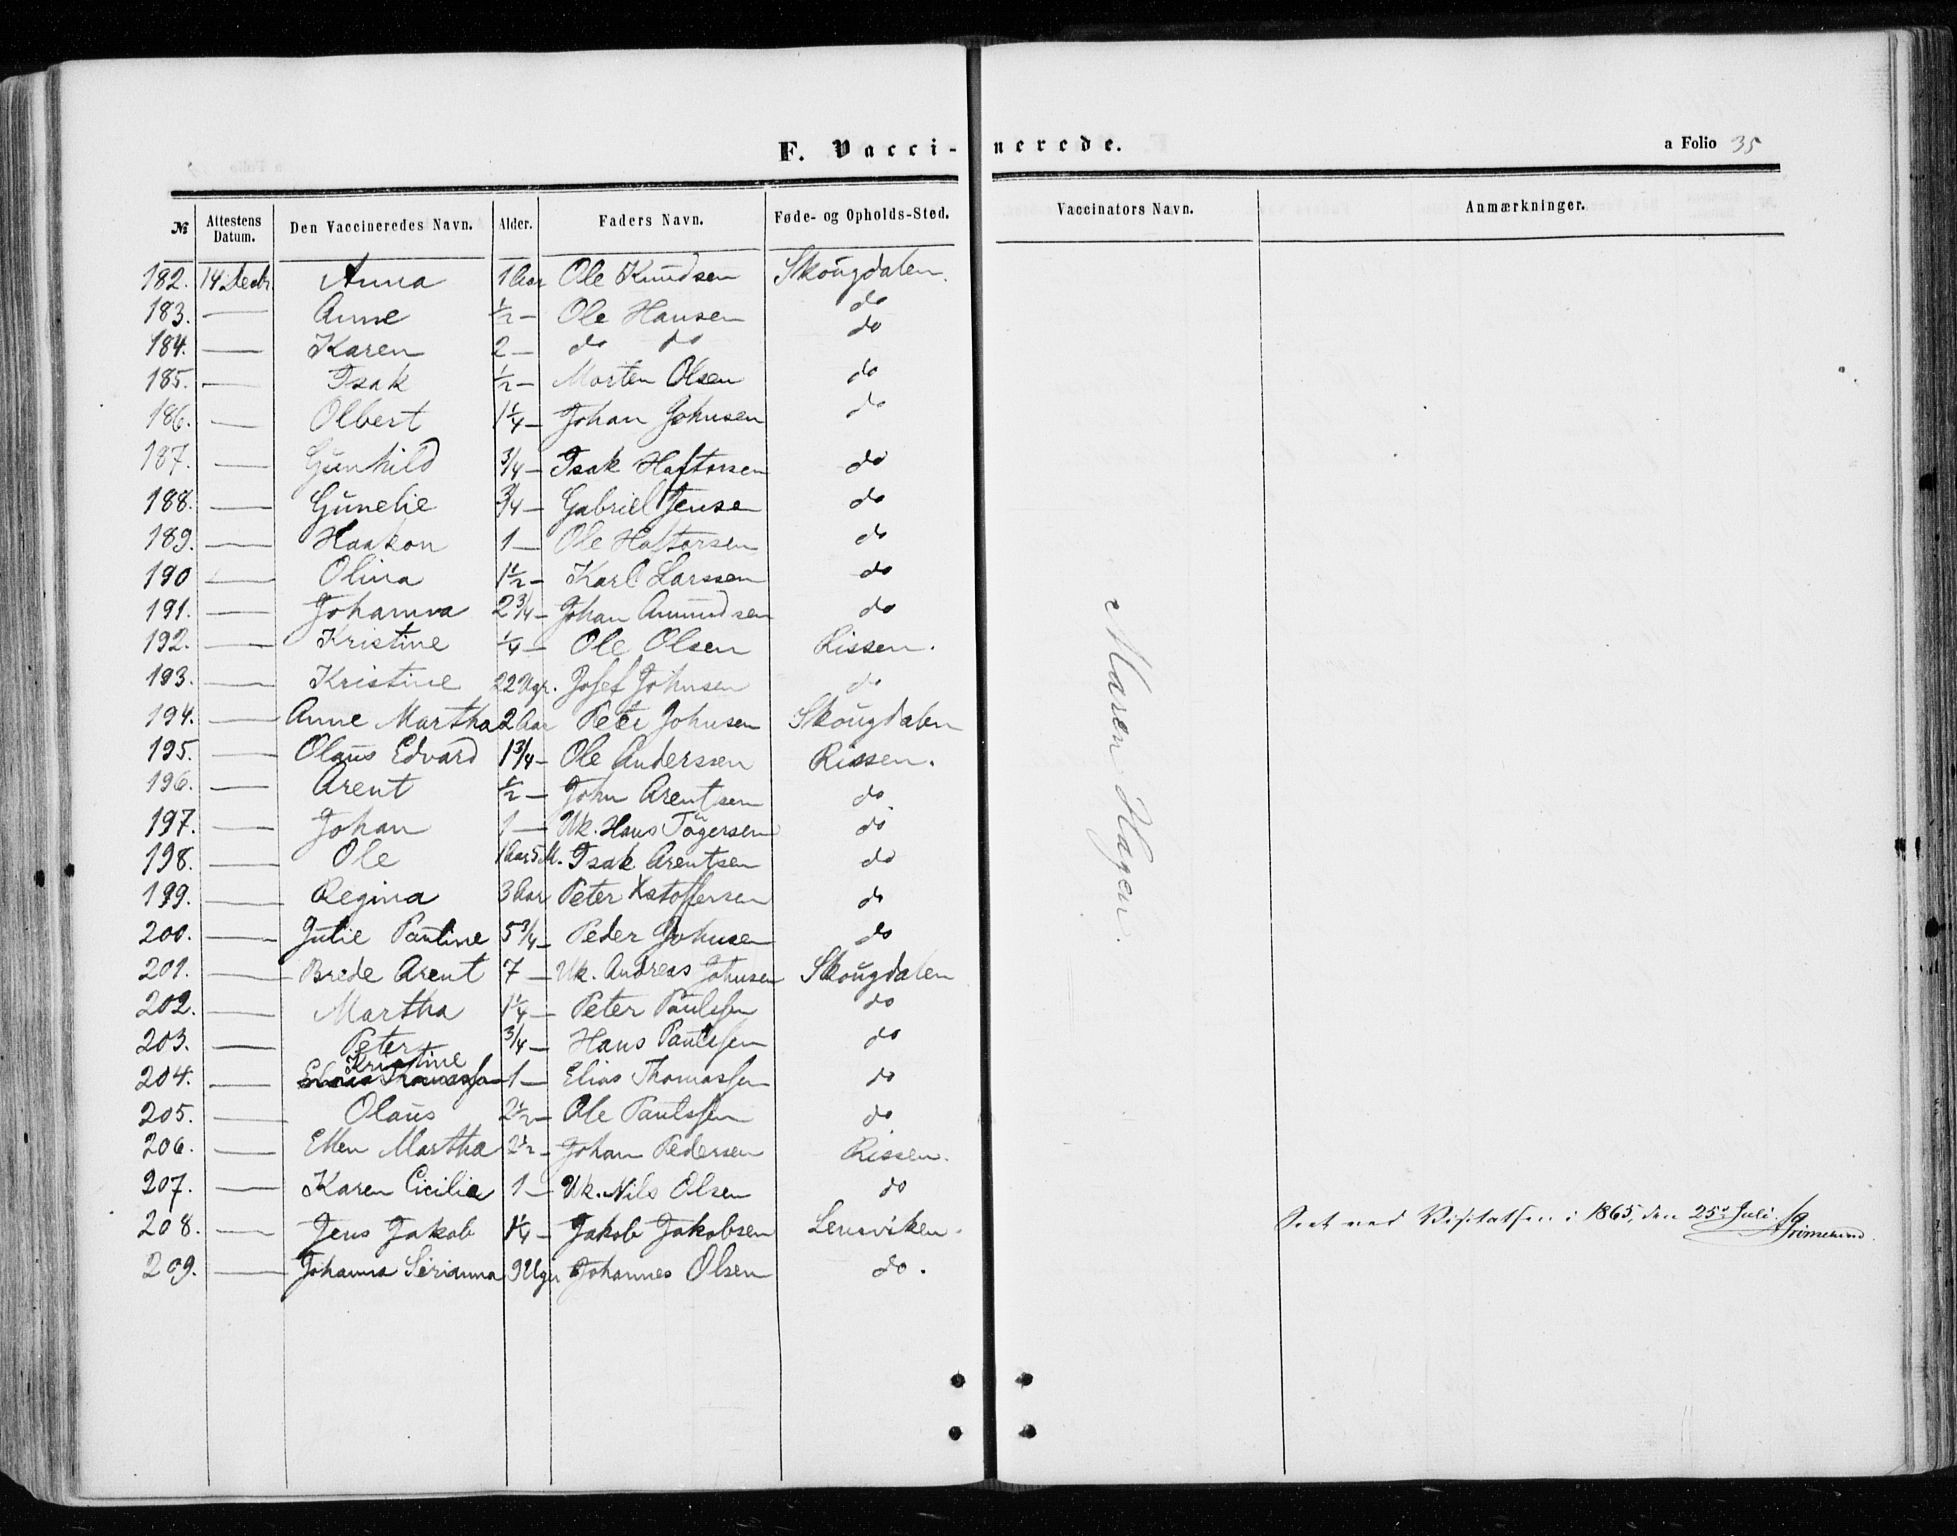 F. Vacci-nerede.
a Folio 35
№ Attestens Datum. Den Vaccineredes Navn. Alder. Faders Navn. Føde- og Opholds-Sted. Vaccinators Navn. Anmærkninger.
182. 14 Decbr Anna 1 Aar Ole Knudsen Skougdalen.
183. — Anne ½ — Ole Hansen do
184. — Karen 2 — do do do
185. — Isak ½ — Morten Olsen do
186. — Olbert 1¼ — Johan Johnsen do
187. — Gunhild ¾ — Isak Haftorsen do
188. — Gunelie ¾ — Gabriel Jensen do
189. — Haakon 1 — Ole Haftorsen do
190 — Olina 1½ — Karl Larssen do
191. — Johanna 2¾ — Johan Amundsen do
192. — Kristine ¼ — Ole Olsen Rissen.
193. — Kristine 22 Ugr. Josef Johnsen do
194. — Anne Martha 2 Aar Peter Johnsen Skougdalen
195. — Olaus Edvard 1¾ — Ole Anderssen Rissen.
196. — Arent ½ — John Arentsen do
197. — Johan 1 — Uk. Hans Tögersen do
198. — Ole 1 Aar 5 M. Isak Arentsen do
199. — Regina 3 Aar Peter Xstoffersen do
200. — Julie Pauline 5¾ — Peder Johnsen do
201. — Brede Arent 7 — Uk. Andreas Johnsen Skougdalen
202. — Martha 1¼ — Peter Paulssen do
203. — Peter ¾ — Hans Paulssen do
204. — Kristine 1 — Elias Thomassen do
205. — Olaus 2½ — Ole Paulssen do
206. — Ellen Martha 2½ — Johan Pedersen Rissen.
207. — Karen Cicilie 1 — Uk. Nils Olsen do
208. — Jens Jakob 1¼ — Jakob Jakobsen Lensviken.
209. — Johanna Serianna 9 Uger Johannes Olsen do.
Maren Hagen.
Seet ved Visitatsen i 1865, den 25de Juli.